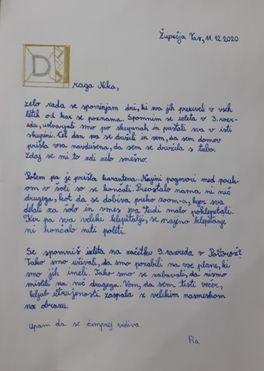 Župečja Vas, 11. 12. 2020
Draga Nika,
zelo rada se spominjam dni, ki sva jih preživeli v vseh
letih od kar se poznava. Spomnim se izleta v 3. razre-
du, uvrščali smo po skupinah in pristali sva v isti
skupini. Cel dan sva se družili in vem, da sem domov
prišla vsa navdušena, da sem se družila s tabo.
Zdaj se mi to zdi zelo smešno.
Potem pa je prišla karantena. Najini pogovori med pouk-
om v šoli so se končali. Preostalo nama ni nič
drugega, kot da se dobiva preko zoom-a, kjer sva
delali za šolo in vmes sva tudi malo poklepetali.
Ker pa sva veliki klepetulji, se najino klepetanje
ni končalo niti po
Se spomniš izleta na začetku 9. razreda v Portorož?
Tako smo uživali, da smo pozabili na vse plane, ki
smo jih imeli. Tako smo se zabavali, da nismo
mislili na nič drugega. Vem, da sem tisti večer,
kljub utrujenosti zaspala z velikim nasmeškom
na obrazu.
Upam da se čimprej vidiva